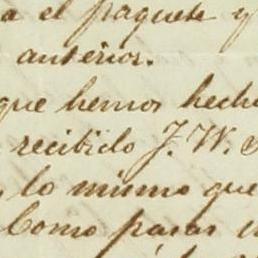 a el paquete y
anterior.
que hemos hech
recibido J. W.
lo mismo que
Como pasar